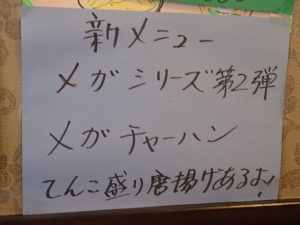 新メニュー
メガシリーズ第2弾
メガチャーハン
てんこ盛り唐揚げあるよ!